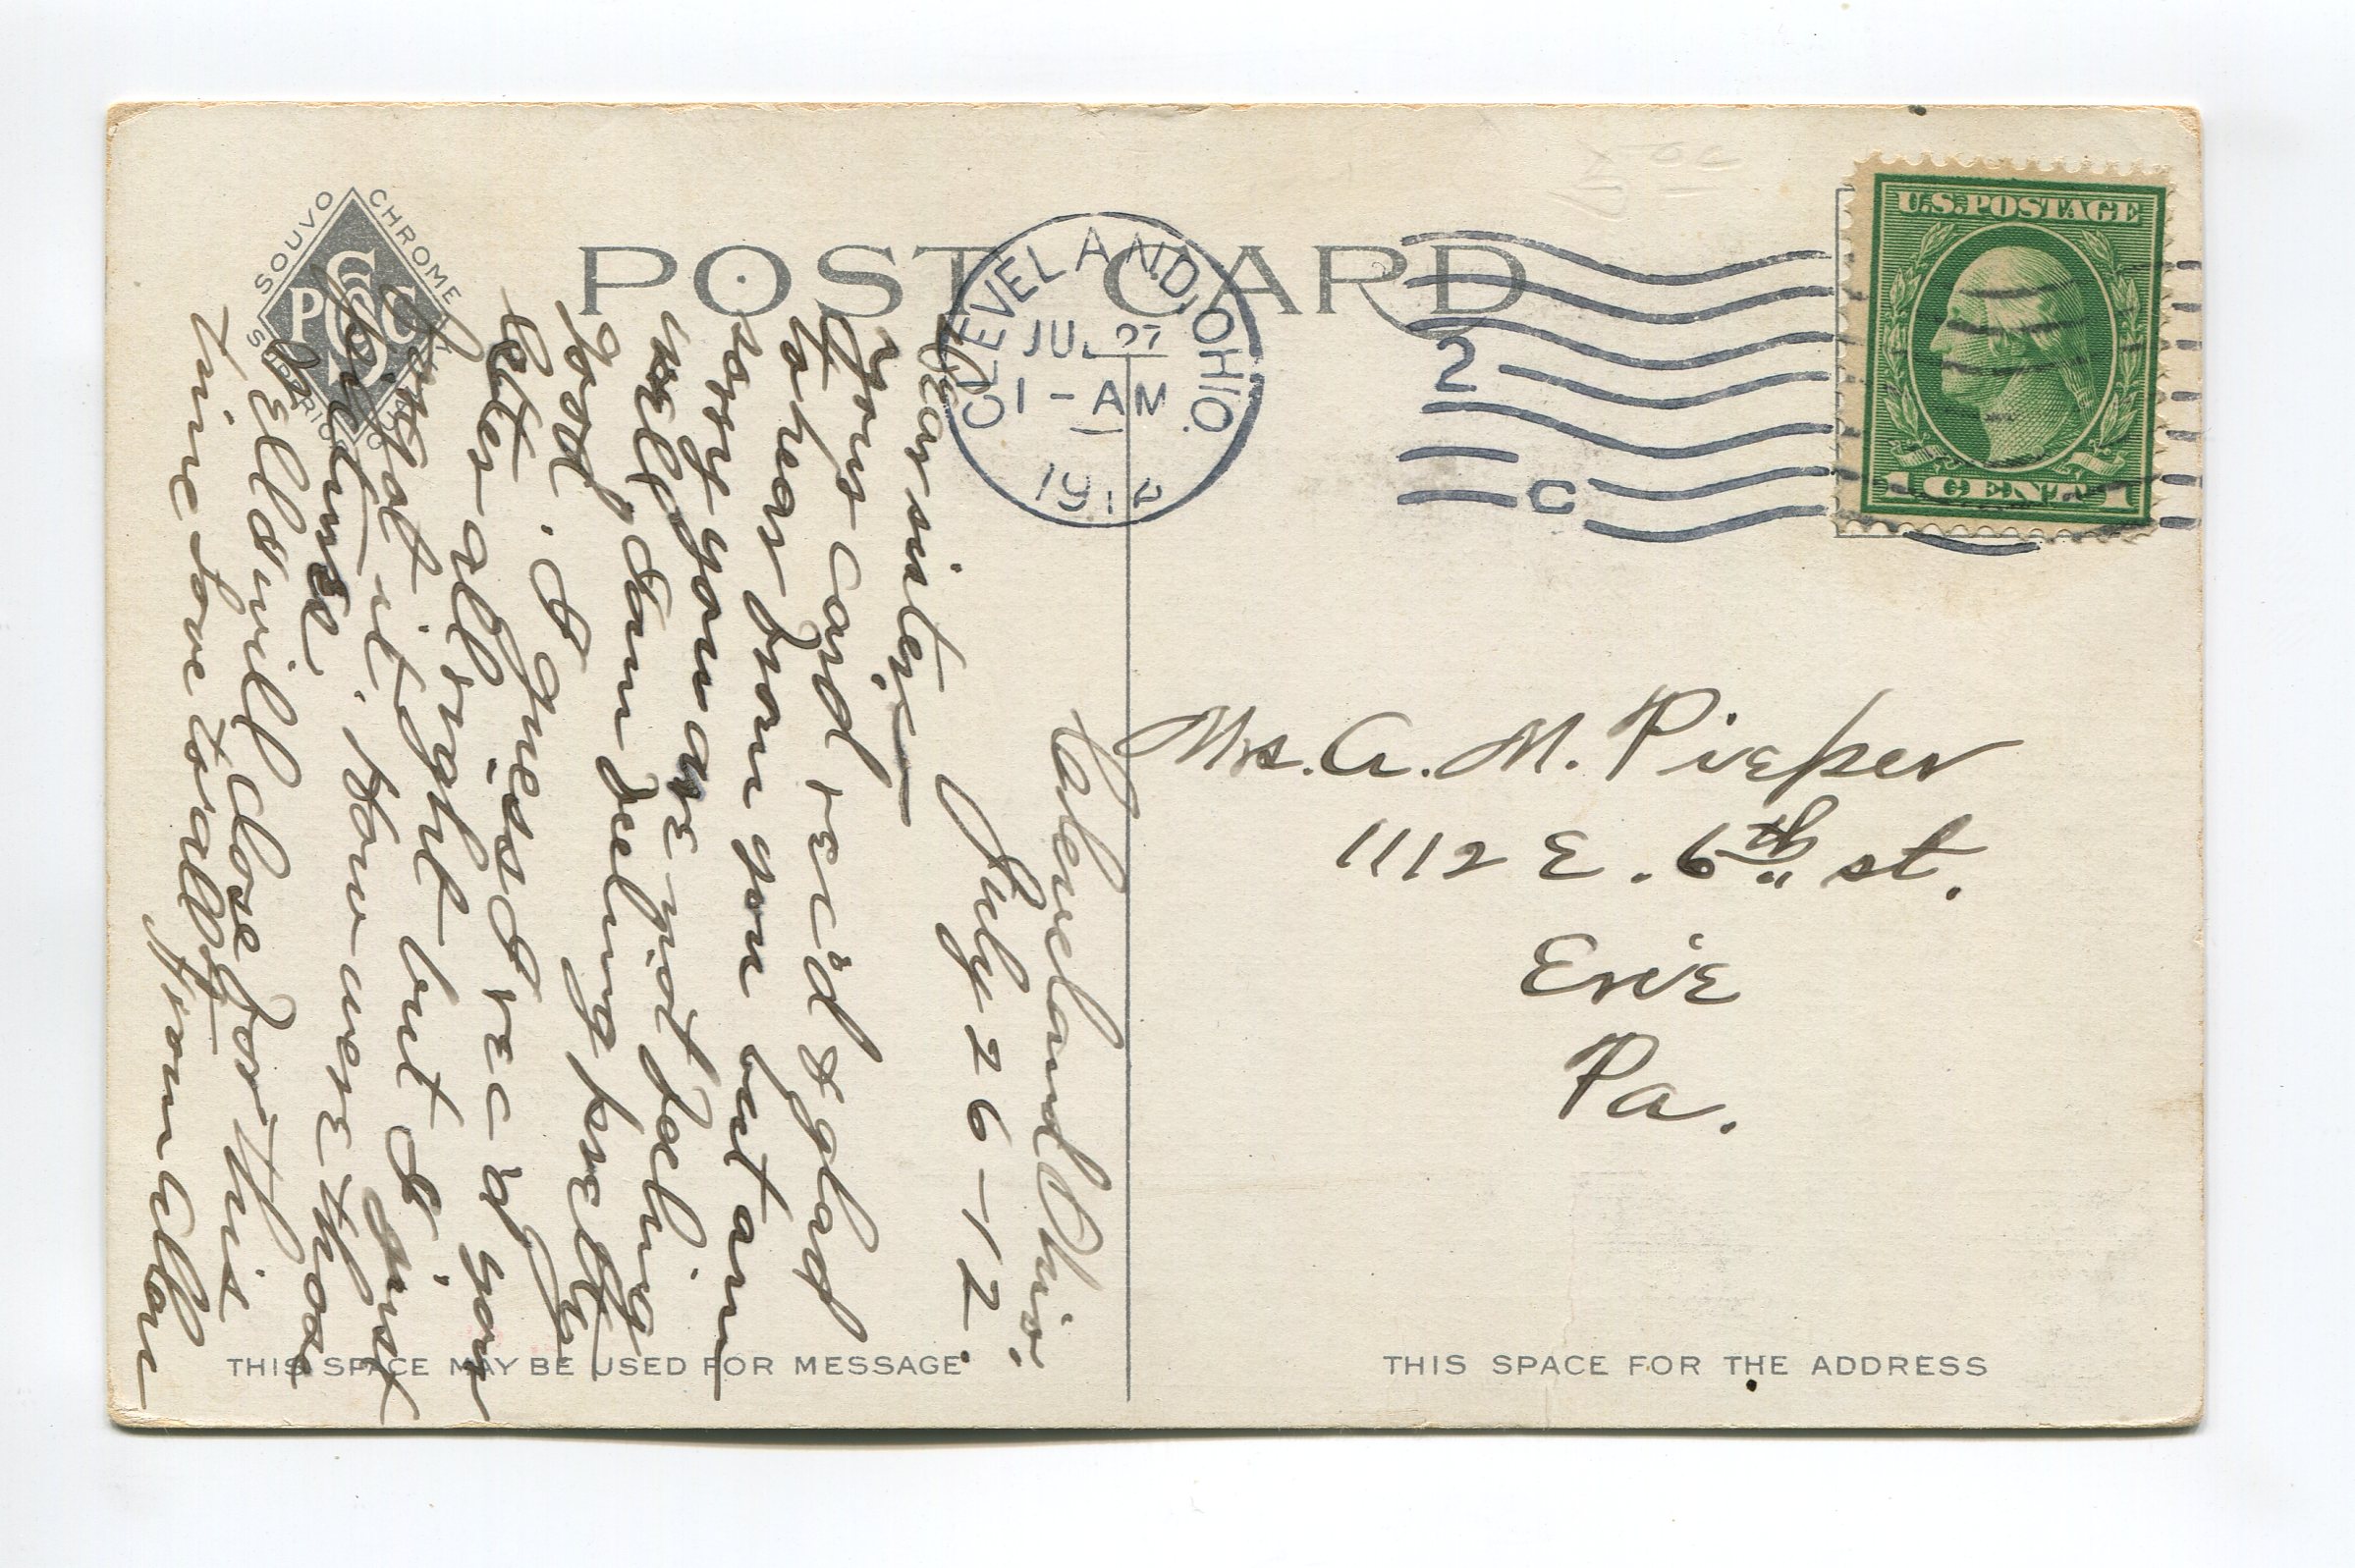 SOUVO CHROME
PSCC
SUPERIOR
POST CARD
CLEVELAND, OHIO.
JUL 27
1 - AM
1912
2
C
U.S. POSTAGE
1 CENT 1
Cleveland Ohio.
July 26 - 12.
Dear sister; —
Your card rec'd & glad
to hear from you but am
sorry you are not feeling
well, I am feeling pretty
good. I guess I rec'd your
letter all right but I just
forgot it. How were those
pictures.
Well I will close for this
time love to all from Allan
Mrs. A. M. Pieper
1112 E. 6th st.
Erie
Pa.
THIS SPACE MAY BE USED FOR MESSAGE
THIS SPACE FOR THE ADDRESS